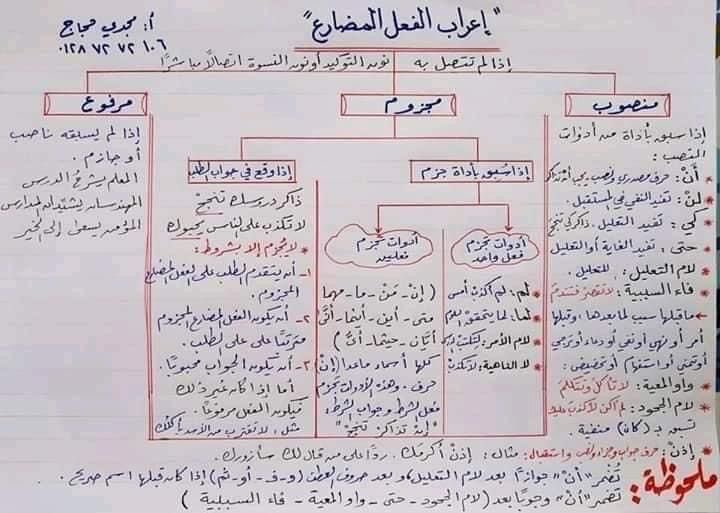 "إعراب الفعل المضارع"
أ: مجدي حجاج
٠١٢٨ ٧٢ ٧٢ ١٠٦
إذا لم تتصل به نون التوكيد أو نون النسوة اتصالًا مباشرًا
منصوب
إذا سبق بأداة من أدوات
النصب:
* أنْ: حرف مصدري ونصب يجب أن تذاكر
* لنْ: تفيد النفي في المستقبل.
* كي: تفيد التعليل. ذاكر كي تنجح
* حتى: تفيد الغاية أو التعليل
* لام التعليل: للتعليل.
* فاء السببية: لا تقصر فتندم
ماقبلها سبب لما بعدها، وقبلها
أمر أو نهي أو نفي أو دعاء أو ترجي
أو تمني أو استفهام أو تحضيض.
* واو المعية: لا تأكل وتتكلم
* لام الجحود: لم أكن لأكذب
تسبق بـ (كان) منفية
* إذنْ: حرف جواب وجزاء ونصب واستقبال: مثال: إذنْ أكرمك. ردًا على من قال لك سأزورك.
مجزوم
إذا سُبق بأداة جزم
أدوات تجزم
فعل واحد
* لم: لم أكذب أمس
* لما: لما يتحقق
* لام الأمر: لتكتب
* لا الناهية: لا تكذب
أدوات تجزم
فعلين
(إنْ - مَنْ - ما - مهما
متى - أين - أينما - أنّى
أيّان - حيثما - أيّ)
كلها أسماء ماعدا (إنْ)
حرف. وهذه الأدوات تجزم
فعل الشرط وجواب الشرط:
"إنْ تذاكرْ تنجحْ"
إذا وقع في جواب الطلب
ذاكر دروسك تنجحْ
لا تكذب على الناس يحبوك
* لا يجزم إلا بشروط:
١- أن يتقدم الطلب على الفعل المضارع
المجزوم.
٢- أن يكون الفعل المضارع المجزوم
مترتبًا على الطلب.
٣- أن يكون الجواب محبوبًا.
أما إذا كان غير ذلك
فيكون الفعل مرفوعًا.
مثل: لا تقترب من الأسد يأكلُك
مرفوع
إذا لم يسبقه ناصب
أو جازم.
المعلم يشرحُ الدرس
المهندسان يشيدان المدارس
المؤمن يسعى إلى الخير
ملحوظة:
تُضمر "أنْ" جوازًا بعد لام التعليل، وبعد حروف العطف (و - ف - أو - ثم) إذا كان قبلها اسم صريح.
تُضمر "أنْ" وجوبًا بعد (لام الجحود - حتى - واو المعية - فاء السببية)